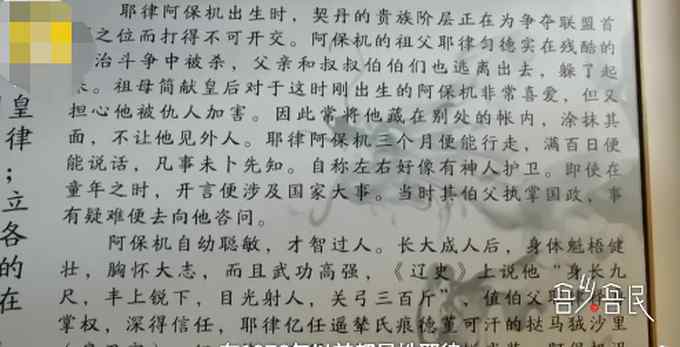 耶律阿保机出生时，契丹的贵族阶层正在为争夺联盟首
之位而打得不可开交。阿保机的祖父耶律匀德实在残酷的
治斗争中被杀，父亲和叔叔伯伯们也逃离出去，躲了起
。祖母简献皇后对于这时刚出生的阿保机非常喜爱，但又
担心他被仇人加害。因此常将他藏在别处的帐内，涂抹其
面，不让他见外人。耶律阿保机三个月便能行走，满百日便
能说话，凡事未卜先知。自称左右好像有神人护卫。即使在
童年之时，开言便涉及国家大事。当时其伯父执掌国政，事
有疑难便去向他咨问。
阿保机自幼聪敏，才智过人。长大成人后，身体魁梧健
壮，胸怀大志，而且武功高强，《辽史》上说他“身长九
尺，丰上锐下，目光射人，关弓三百斤”，值伯父耶律
掌权，深得信任，耶律亿任遥辇氏痕德堇可汗的挞马狨沙里
皇
律
；
立
各
的
在
吾乡吾民